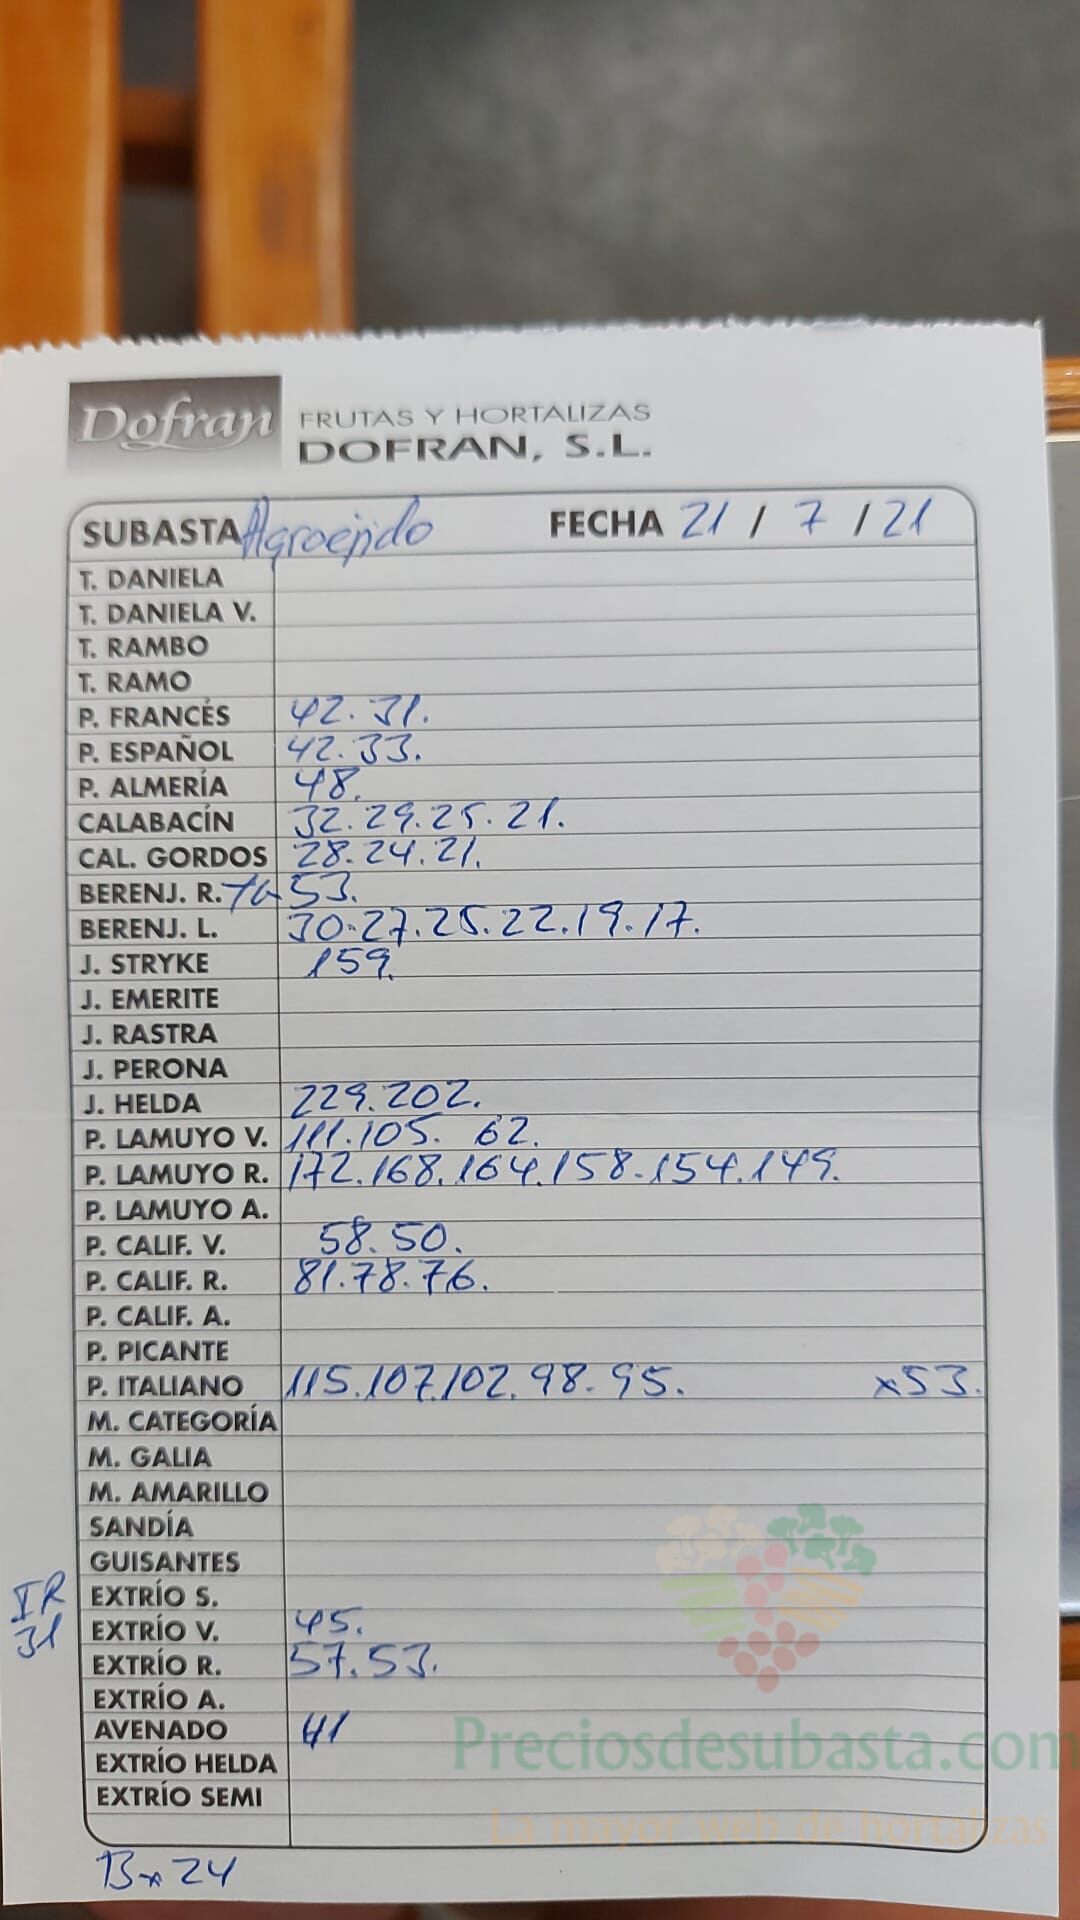 Dofran FRUTAS Y HORTALIZAS
DOFRAN, S.L.
SUBASTA Agroejido FECHA 21 / 7 / 21
T. DANIELA
T. DANIELA V.
T. RAMBO
T. RAMO
P. FRANCÉS 42. 31.
P. ESPAÑOL 42. 33.
P. ALMERÍA 48.
CALABACÍN 32. 29. 25. 21.
CAL. GORDOS 28. 24. 21.
BERENJ. R. 53.
BERENJ. L. 30. 27. 25. 22. 19. 17.
J. STRYKE 159.
J. EMERITE
J. RASTRA
J. PERONA
J. HELDA 229. 202.
P. LAMUYO V. 111. 105. 62.
P. LAMUYO R. 172. 168. 164. 158. 154. 149.
P. LAMUYO A.
P. CALIF. V. 58. 50.
P. CALIF. R. 81. 78. 76.
P. CALIF. A.
P. PICANTE
P. ITALIANO 115. 107. 102. 98. 95. x53.
M. CATEGORÍA
M. GALIA
M. AMARILLO
SANDÍA
GUISANTES
IR EXTRÍO S.
31 EXTRÍO V. 45.
EXTRÍO R. 57. 53.
EXTRÍO A.
AVENADO 41
EXTRÍO HELDA
EXTRÍO SEMI
Preciosdesubasta.com
La mayor web de hortalizas
Bx 24